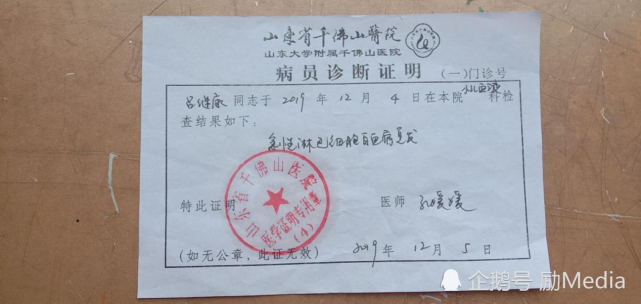 山东省千佛山医院
山东大学附属千佛山医院
病员诊断证明 (一)门诊号
吕继家 同志于 2019 年 12 月 4 日在本院 小儿血液 科检
查结果如下:
急性淋巴细胞白血病复发
山东省千佛山医院
医学证明专用章
(4)
特此证明 医师 孔媛媛
(如无公章,此证无效) 2019 年 12 月 5 日
企鹅号 励Media